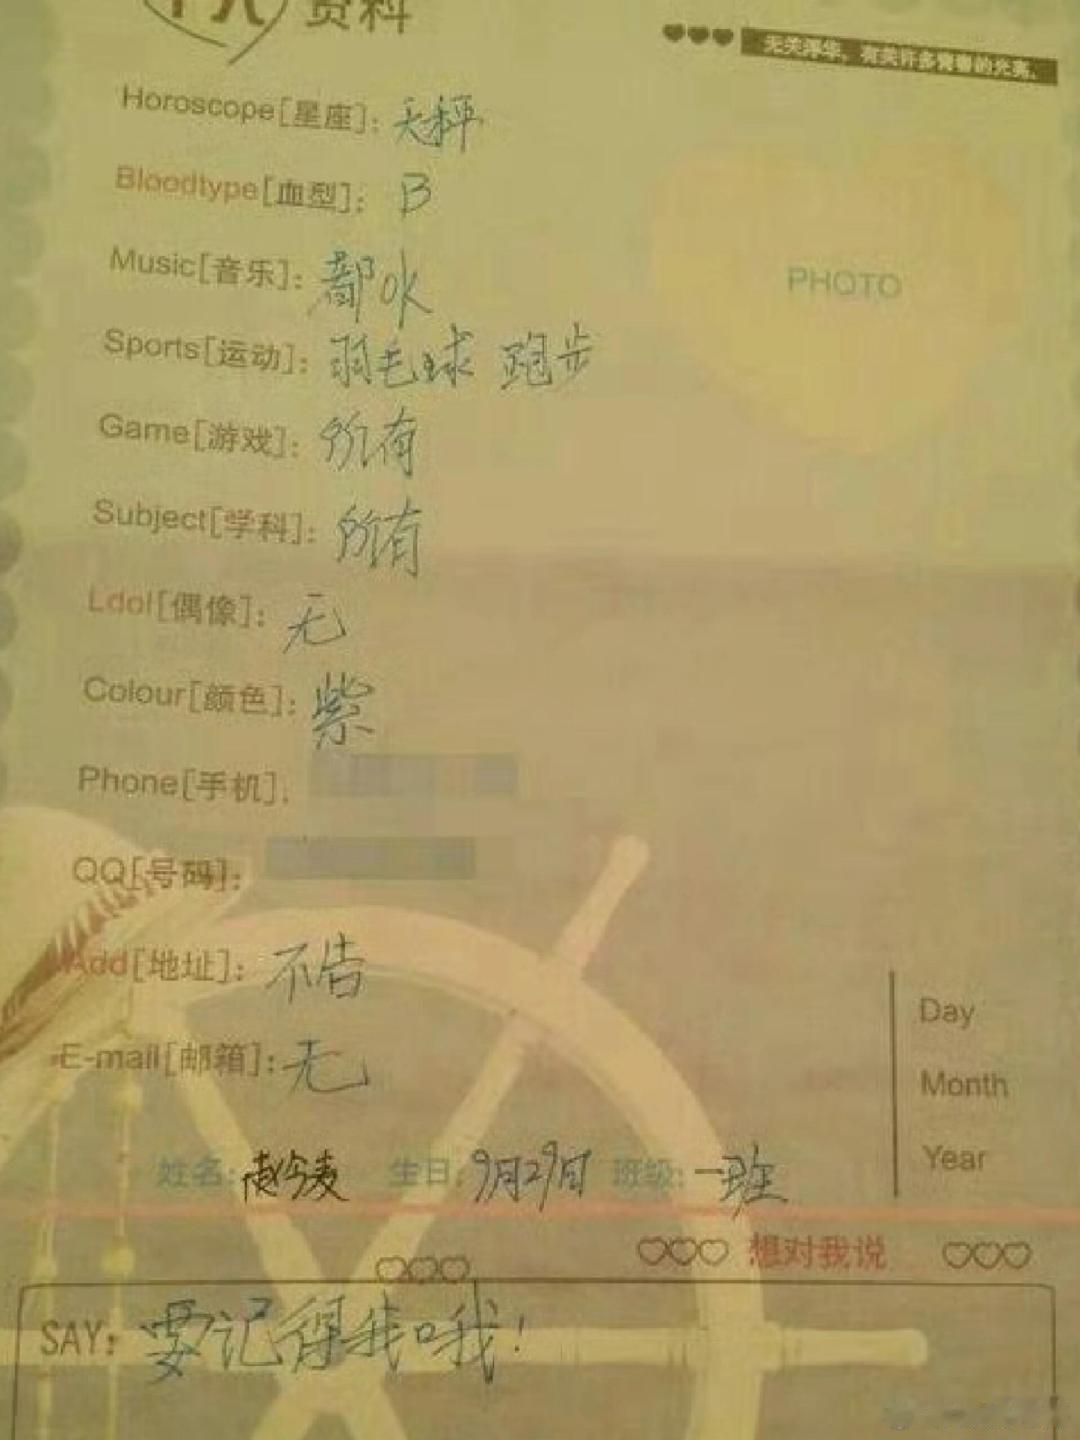 个人资料
无关浮华，有关许多青春的光亮。
Horoscope[星座]：天秤
Bloodtype[血型]：B
Music[音乐]：都OK
PHOTO
Sports[运动]：羽毛球 跑步
Game[游戏]：所有
Subject[学科]：所有
Ldol[偶像]：无
Colour[颜色]：紫
Phone[手机]：
QQ[号码]：
Add[地址]：不告
E-mail[邮箱]：无
Day
Month
Year
姓名：赵今麦 生日：9月29日 班级：一班
想对我说
SAY：要记得我哦！